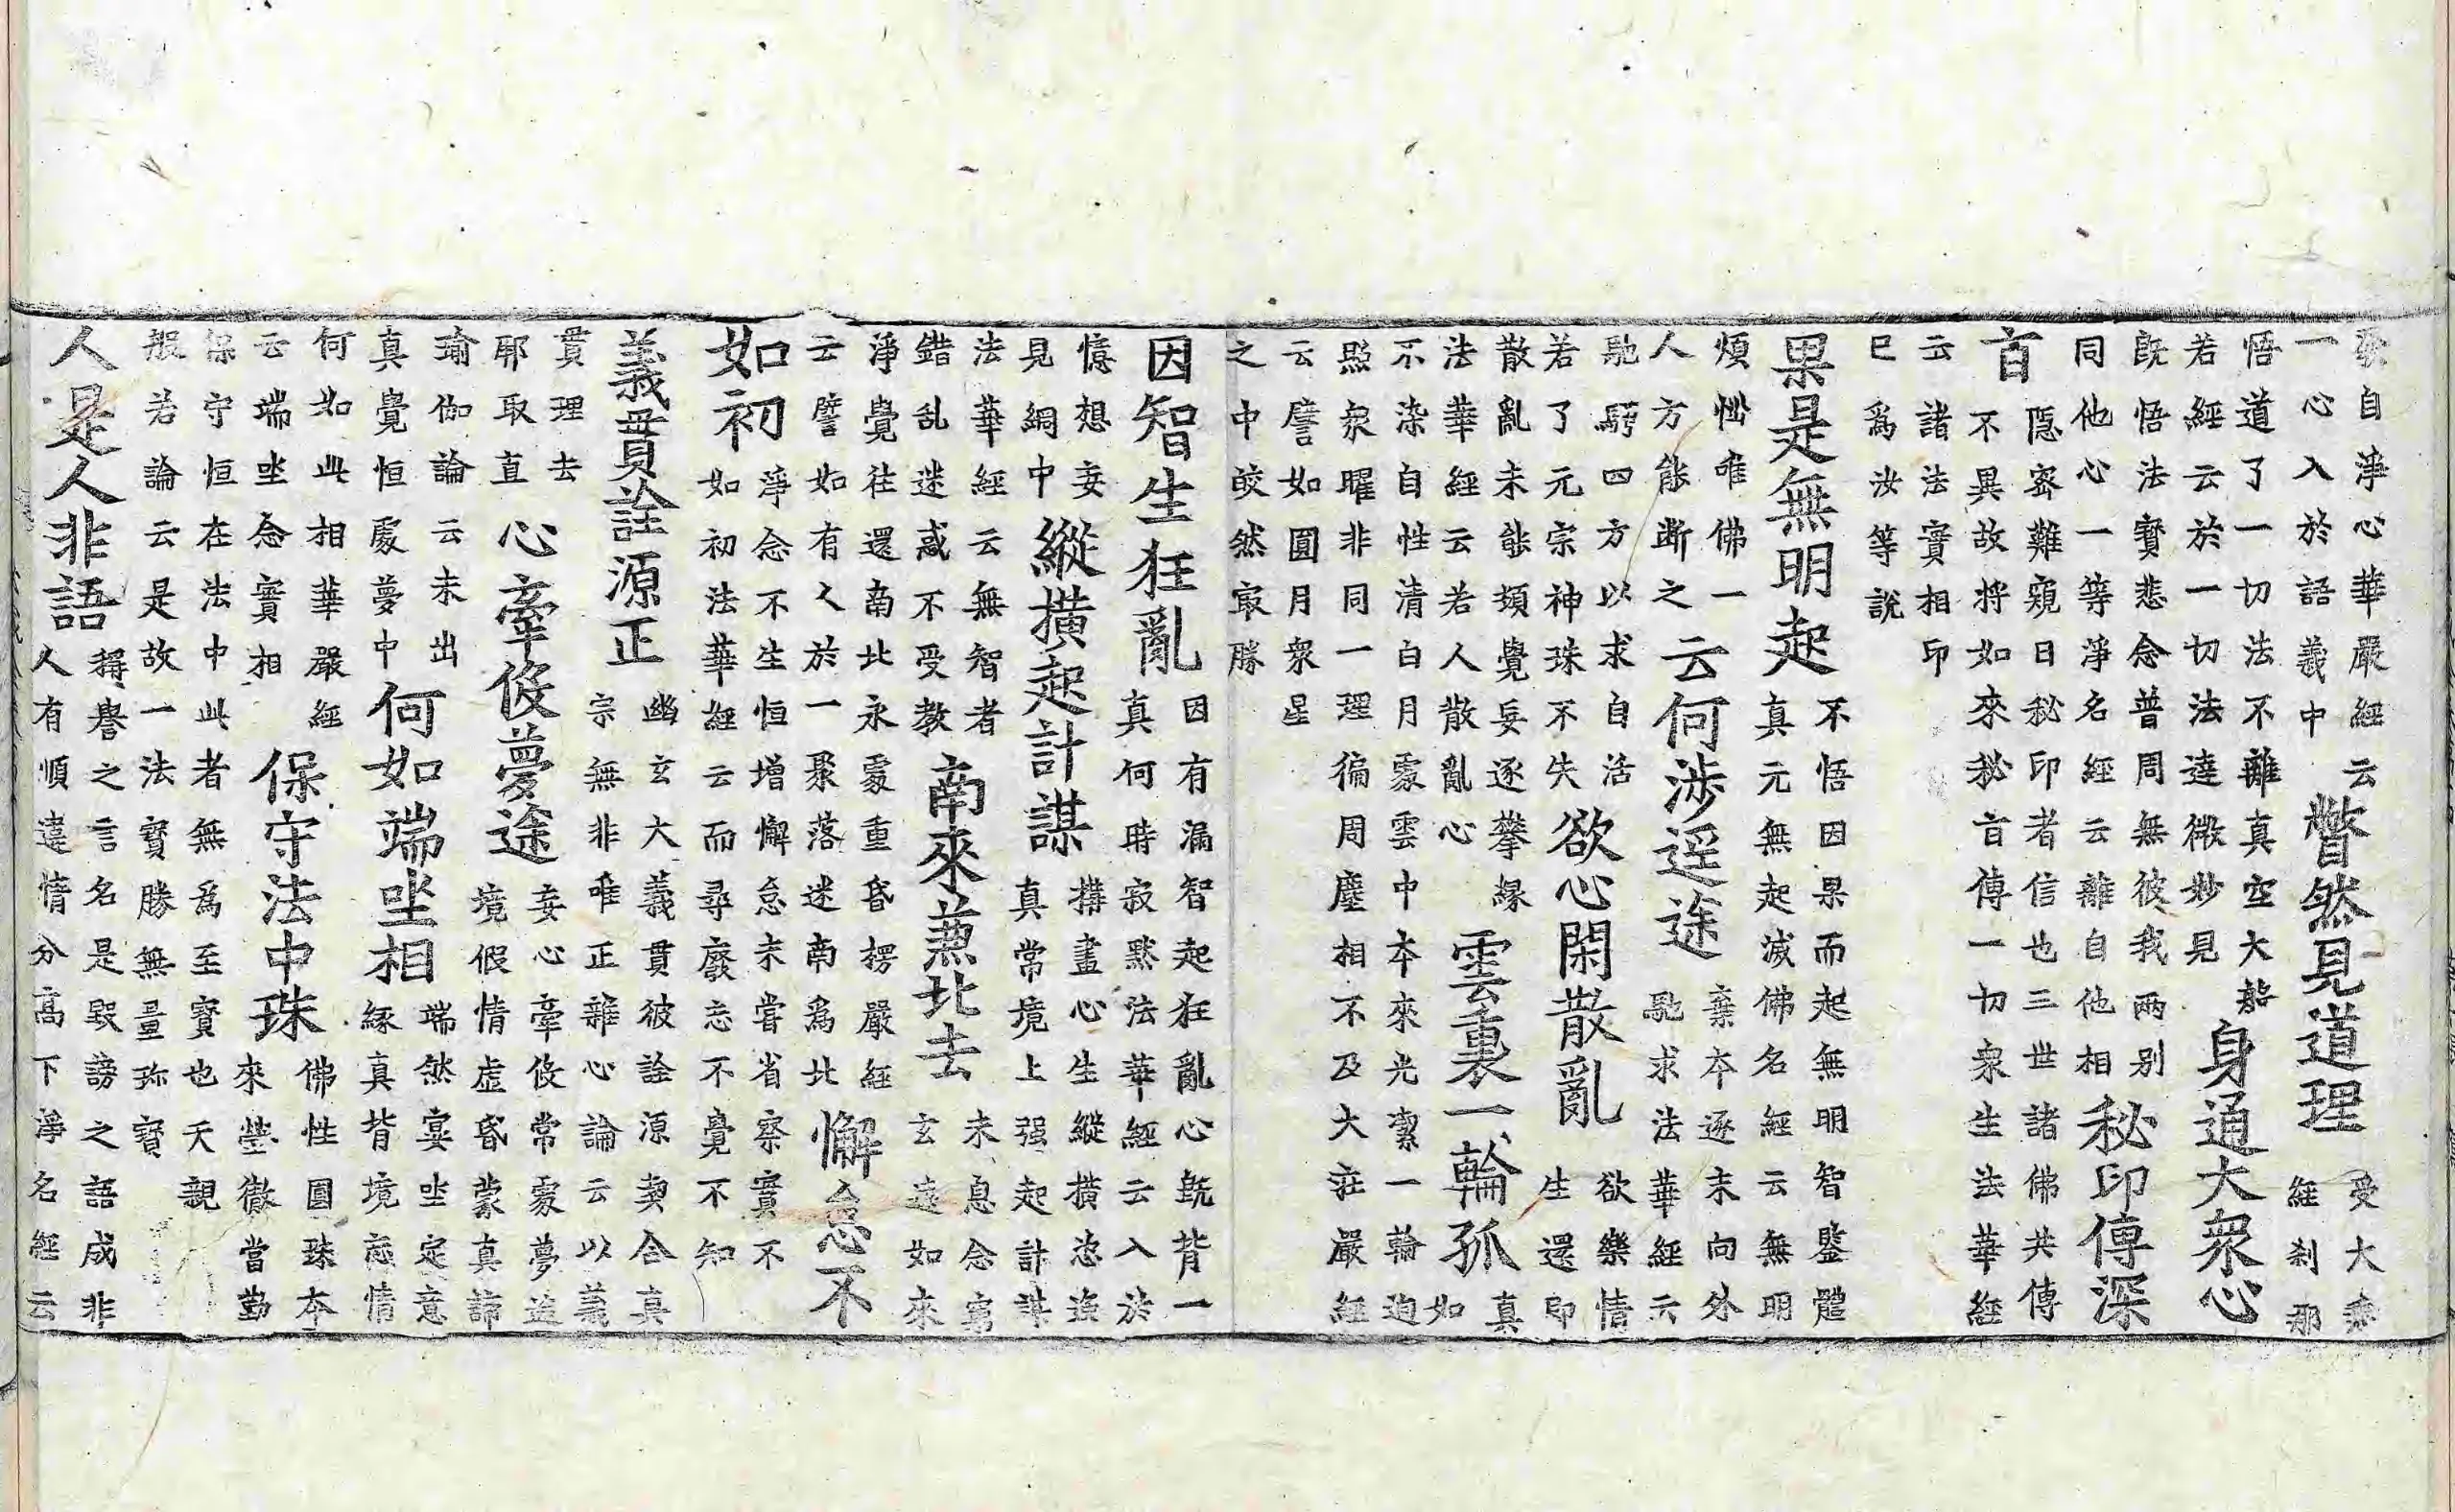 衆自淨心華嚴經云
一心入於語義中
瞥然見道理
受大乘
經刹那
悟道了一切法不離真空大般
若經云於一切法達微妙見
身通大衆心
既悟法寶悲念普周無彼我兩别
同他心一等淨名經云離自他相
秘印傳深
旨
隱密難窺曰秘印者信也三世諸佛共傳
不異故將如來秘旨傳一切衆生法華經
云諸法實相印
巳爲汝等説
果是無明起
不悟因果而起無明智鑒體
真元無起滅佛名經云無明
煩惱唯佛一
人方能断之
云何涉遥途
棄本逐末向外
馳求法華經云
馳騁四方以求自活
若了元宗神珠不失
欲心閑散亂
欲樂情
生還印
散亂未能頓覺妄逐攀緣
法華經云若人散亂心
雲裏一輪孤
真
如
不染自性清白月處雲中本來光潔一輪迥
照衆曜非同一理徧周塵相不及大莊嚴經
云譬如圓月衆星
之中皎然冣勝
因智生狂亂
因有漏智起狂亂心既背一
真何時寂默法華經云入於
憶想妄
見網中
縱橫起計謀
畫心生縱橫恣
真常境上强起計謀
法華經云無智者
錯乱迷惑不受教
南來兼北去
未息念
玄遠如來
淨覺往還南北永處重昏楞嚴經
云譬如有人於一聚落迷南爲北
懈怠不
如初
淨念不生恒增懈怠未嘗省察實不
如初法華經云而尋廢忘不覺不知
義貫詮源正
幽玄大義貫彼詮源契合真
宗無非唯正雜心論云以義
貫理去
耶取直
心牽伇夢途
妄心牽伇常處夢途
境假情虛昏蒙真諦
瑜伽論云未出
真覺恒處夢中
何如端坐相
端然宴坐定意
緣真背境忘情
何如此相華嚴經
云端坐念實相
保守法中珠
佛性圓珠本
來瑩徹當勤
保守恒在法中此者無爲至寶也天親
般若論云是故一法寶勝無量珎寶
人是人非語
稱譽之言名是毀謗之語成非
人有順違情分高下淨名經云